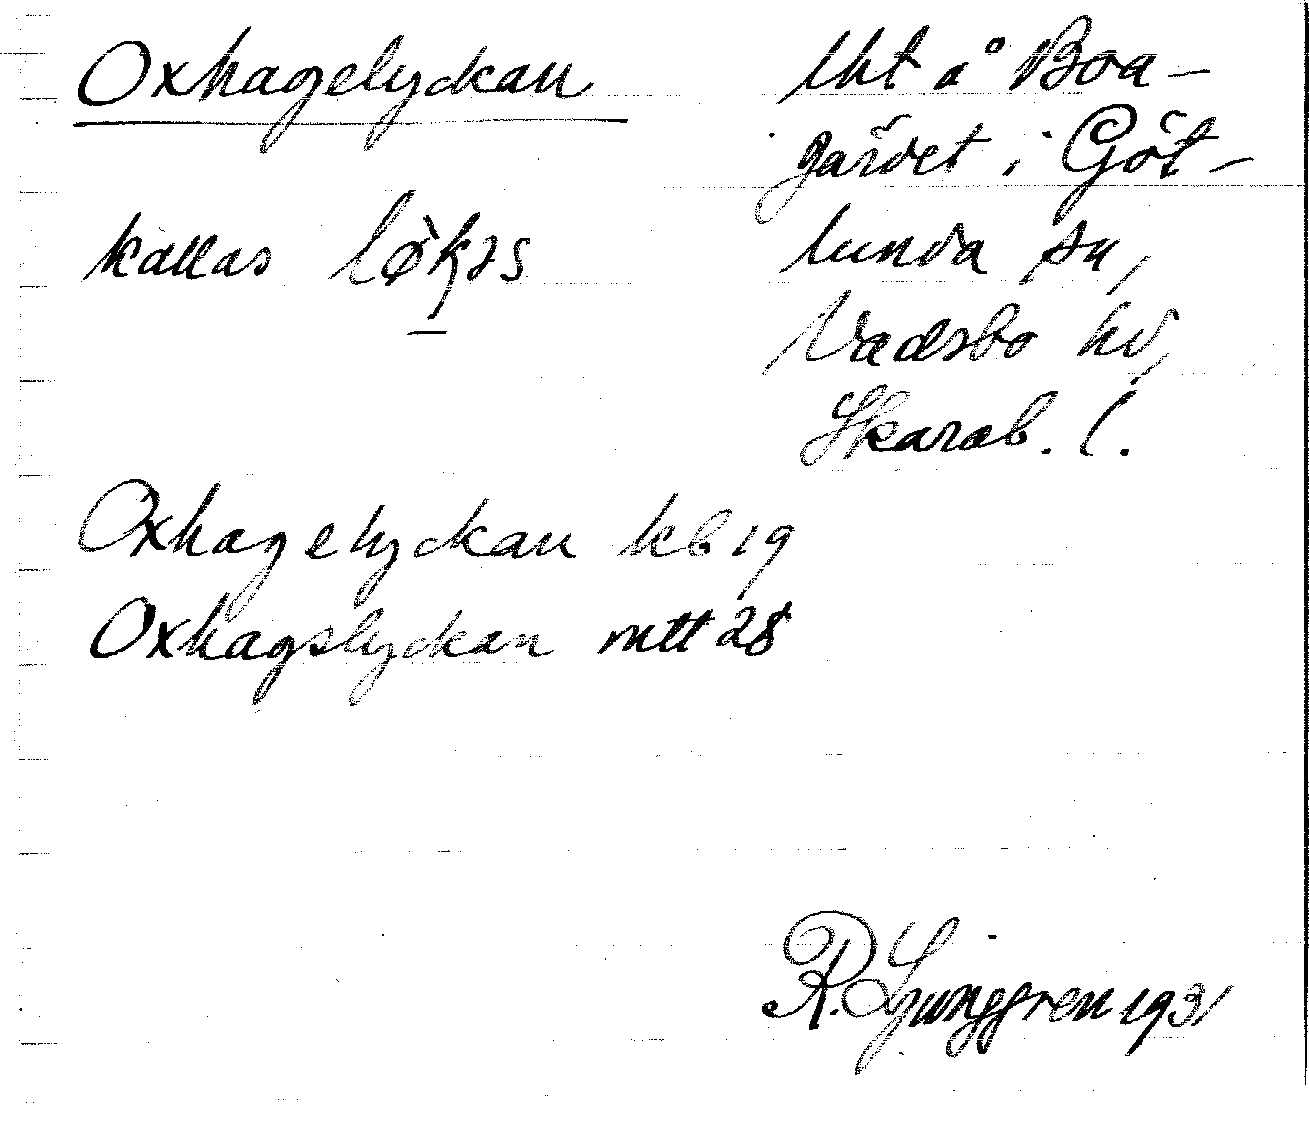 Oxhagelyckan
lht å Boa-
gärdet i Göt-
lunda sn,
Vadsbo hd,
Skarab. l.
kallas
Oxhagelyckan kb 19
Oxhagslyckan mtt 28
R. Ljunggren 1931